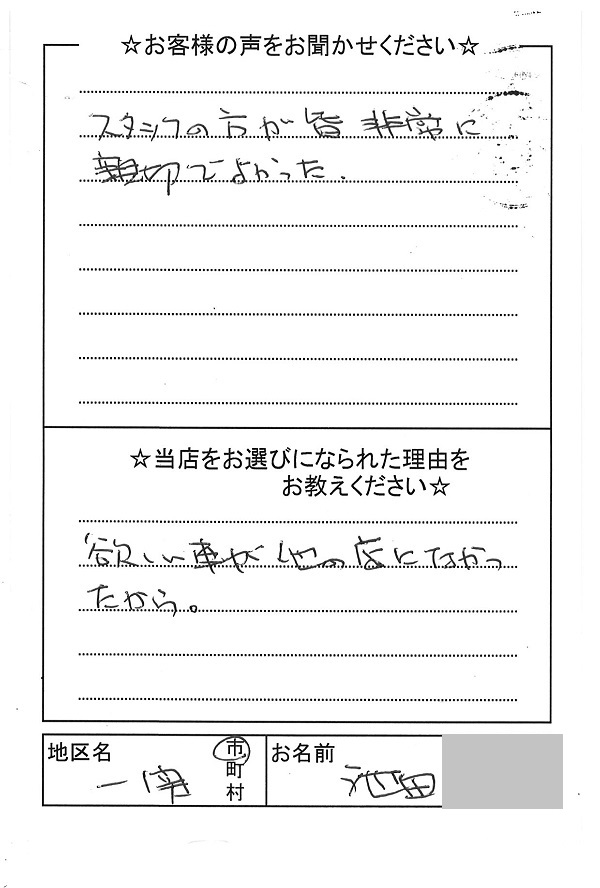 ☆お客様の声をお聞かせください☆
スタッフの方が皆非常に
親切でよかった.
☆当店をお選びになられた理由を
お教えください☆
欲しい車が他の店になかっ
たから。
地区名
一宮
市
町
村
お名前
池田